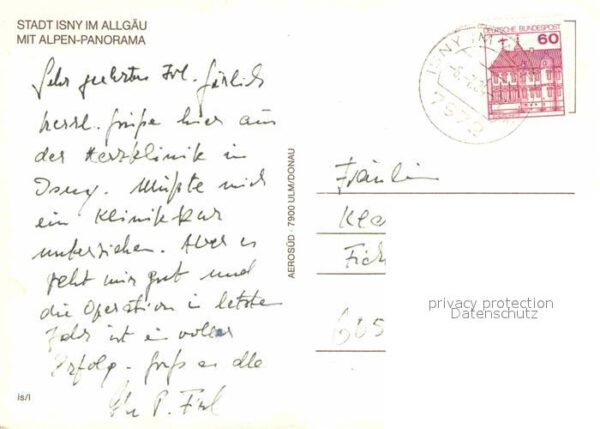 STADT ISNY IM ALLGÄU
MIT ALPEN-PANORAMA
Sehr geehrtes Frl.
herzl. Grüße hier aus
der Herzklinik in
Isny. Mußte mich
ein Klinikkur
unterziehen. Aber es
geht mir gut und
die Operation im letzten
Jahr ist ein voller
Erfolg. Gruß an alle
Ihr P.
is/l
AEROSÜD · 7900 ULM/DONAU
DEUTSCHE BUNDESPOST
60
ISNY IM
7972
Fräulein
605
privacy protection
Datenschutz